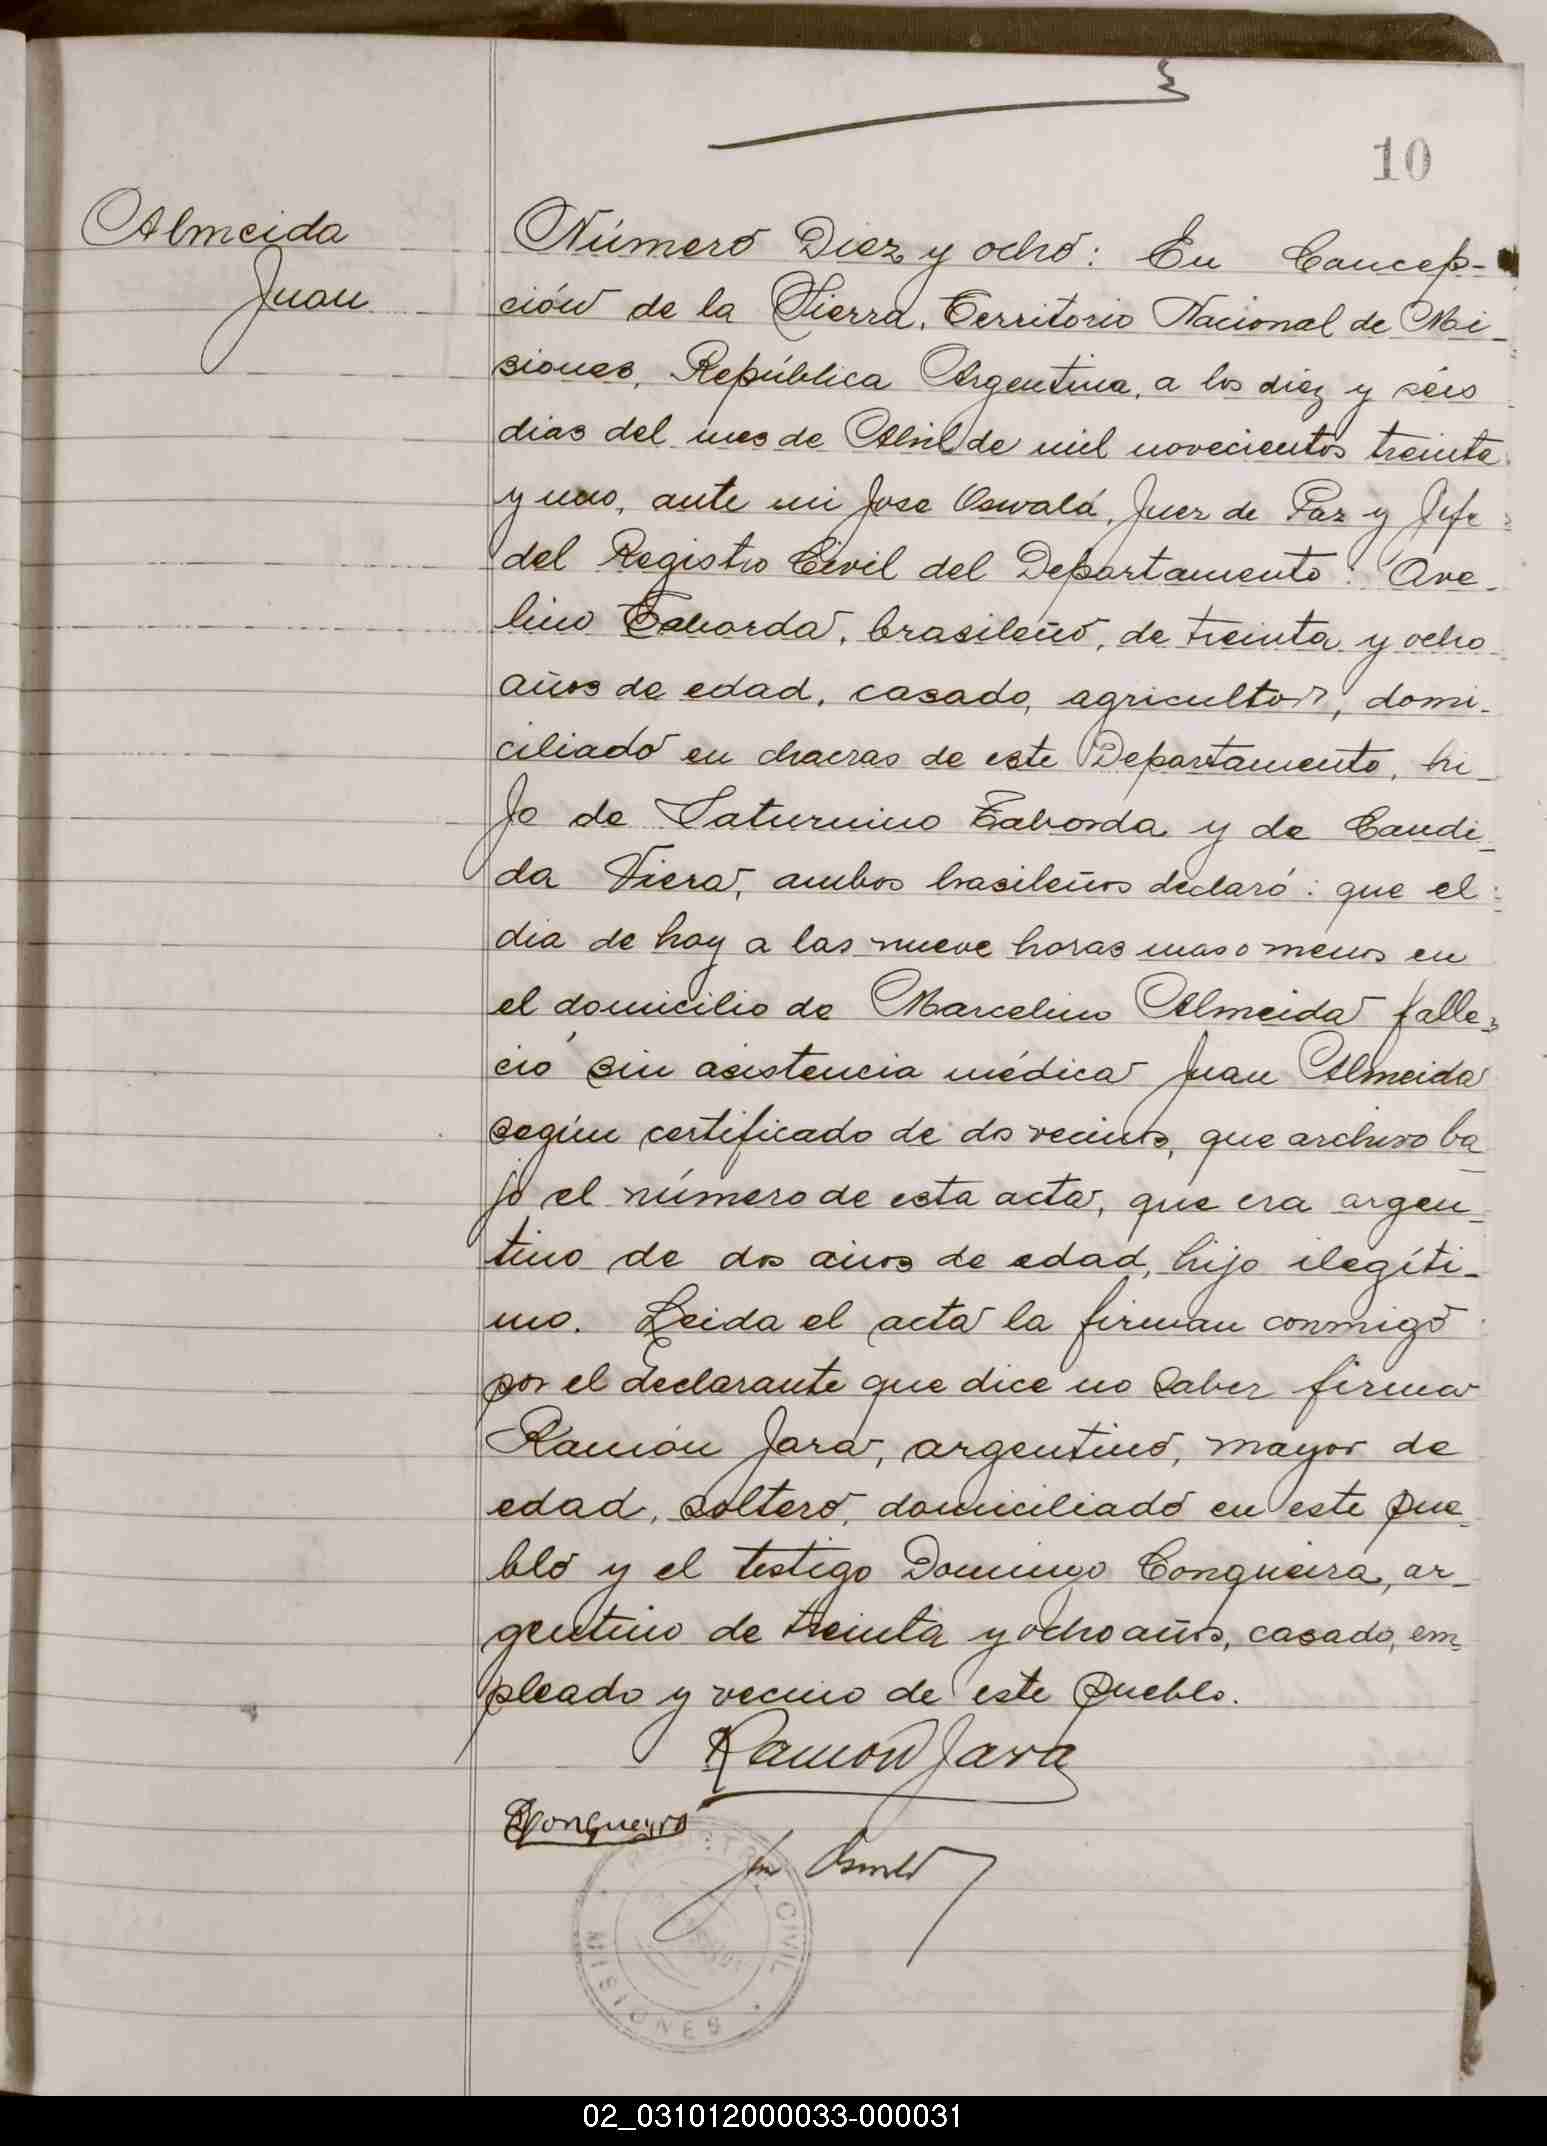 10
Almeida
Juan
Número Diez y ocho: En Concep-
ción de la Sierra, Territorio Nacional de Mi-
siones, República Argentina, a los diez y séis
dias del mes de Abril de mil novecientos treinta
y uno, ante mi Jose Oswald, Juez de Paz y Jefe
del Registro Civil del Departamento: Ave-
lino Taborda, brasileño, de treinta y ocho
años de edad, casado, agricultor, domi-
ciliado en chacras de este Departamento, hi-
jo de Saturnino Taborda y de Candi-
da Viera, ambos brasileños declaró: que el
dia de hoy a las nueve horas mas o menos en
el domicilio de Marcelino Almeida falle-
ció sin asistencia médica Juan Almeida
según certificado de dos vecinos, que archivo ba
jo el número de esta acta, que era argen-
tino de dos años de edad, hijo ilegíti-
mo. Leida el acta la firman conmigo
por el declarante que dice no saber firmar
Ramón Jara, argentino, mayor de
edad, soltero, domiciliado en este pue-
blo y el testigo Domingo Conqueira, ar-
gentino de treinta y ocho años, casado, em-
pleado y vecino de este pueblo.
Ramon Jara
Oswald
CIVIL
MISIONES
02_031012000033-000031